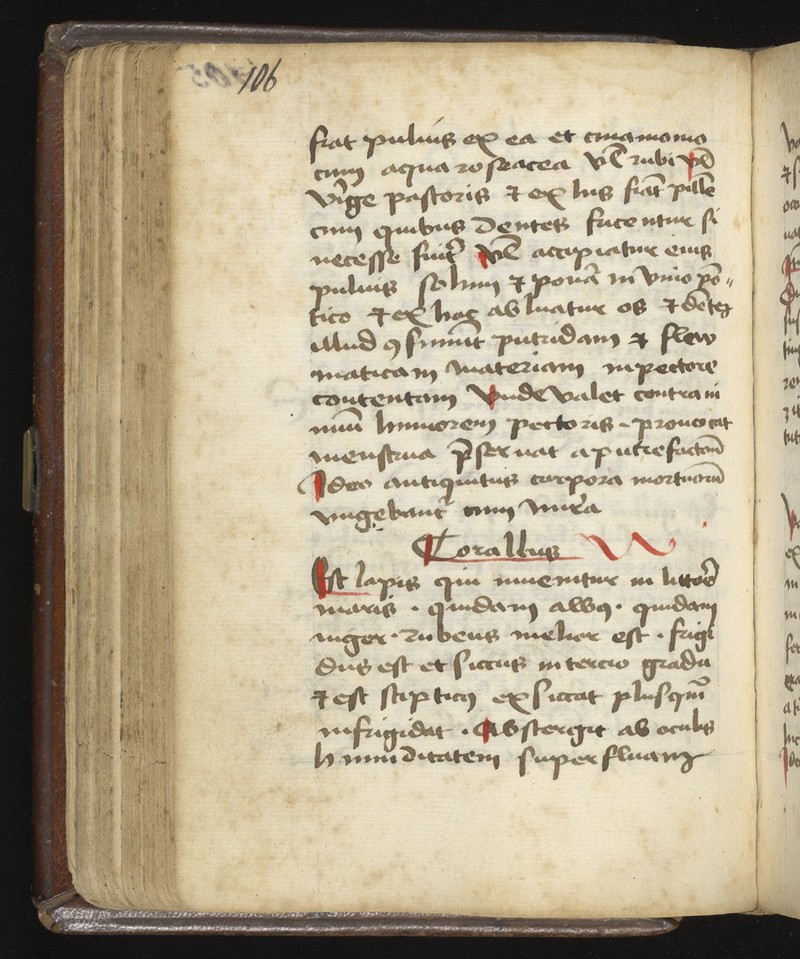 106
fiat pulius ex ea et cinamomo
cum aqua roseacea vl rubi vl
virge pastoris et ex his fiāt pille
cum quibus dentes fricentur si
necesse fuit̄ vl accipiatur eius
puluis solum et ponat̄ in vino pō
tico et ex hoc abluatur os et dētes
illud ꝯsumit putridam et flew
maticam materiam in pectore
contentam vnde valet contra ni
miū humorem pectoris · prouocat
menstrua p̄seruat a putrefactōe
Ideo antiquitus corpora mortuorū
vngebant̄ cum mirra
Corallus
Est lapis qui inuenitur in littore
maris · quidam albꝰ · quidam
niger · rubeus melior est · frigi
dus est et siccus in tercio gradu
et est stipticus exsiccat plusqm̄
infrigidat · Abstergit ab oculis
humiditatem superfluam